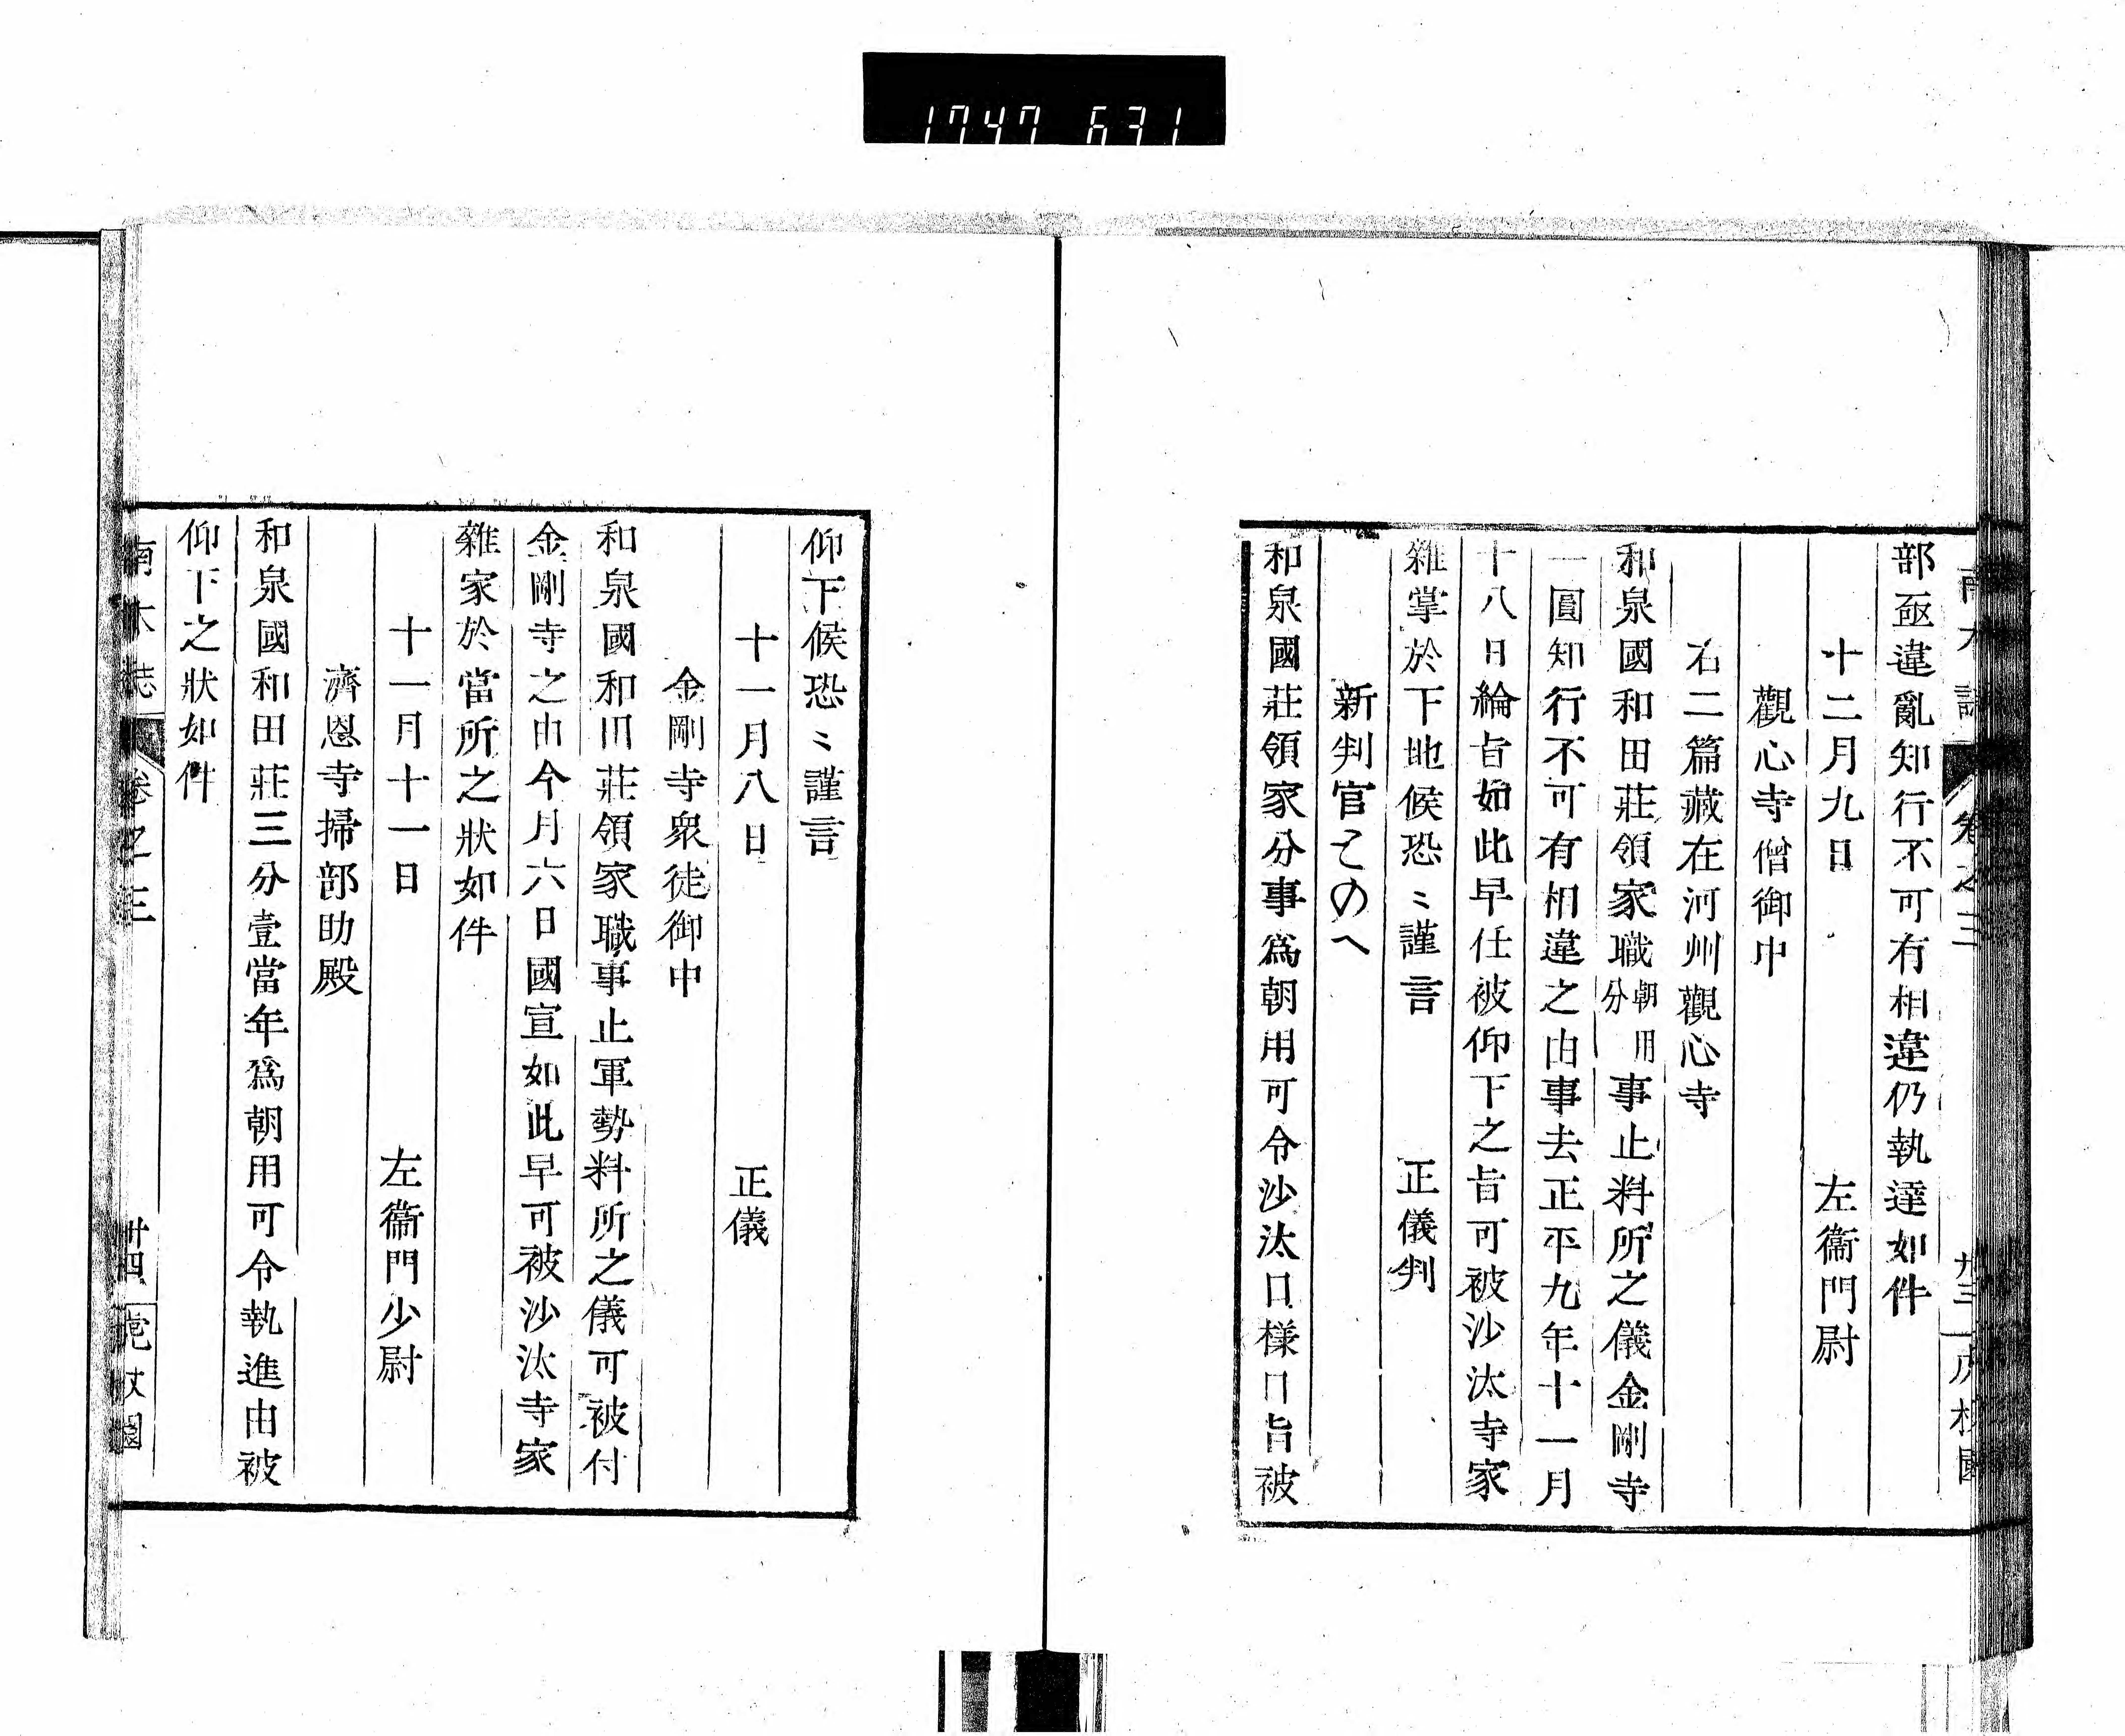 1747 631
南木誌 卷之三 廿三 虎杖園
部亟違亂知行不可有相違仍執達如件
十二月九日 左衞門尉
觀心寺僧御中
右二篇藏在河州觀心寺
和泉國和田莊領家職朝用分事止料所之儀金剛寺
一圓知行不可有相違之由事去正平九年十一月
十八日綸旨如此早任被仰下之旨可被沙汰寺家
雜掌於下地候恐〻謹言 正儀判
新判官とのへ
和泉國莊領家分事爲朝用可令沙汰口樣口旨被
仰下候恐〻謹言
十一月八日 正儀
金剛寺衆徒御中
和泉國和田莊領家職事止軍勢料所之儀可被付
金剛寺之由今月六日國宣如此早可被沙汰寺家
雜家於當所之狀如件
十一月十一日 左衞門少尉
濟恩寺掃部助殿
和泉國和田莊三分壹當年爲朝用可令執進由被
仰下之狀如件
南木誌 卷之三 廿四 虎杖園